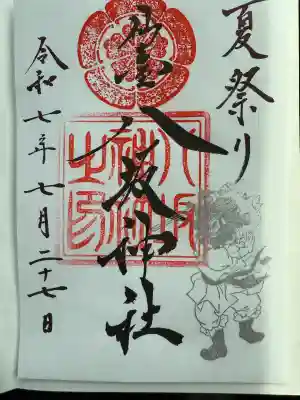 夏祭り
八坂神社
令和七年七月二十七日
八坂
神社
之印